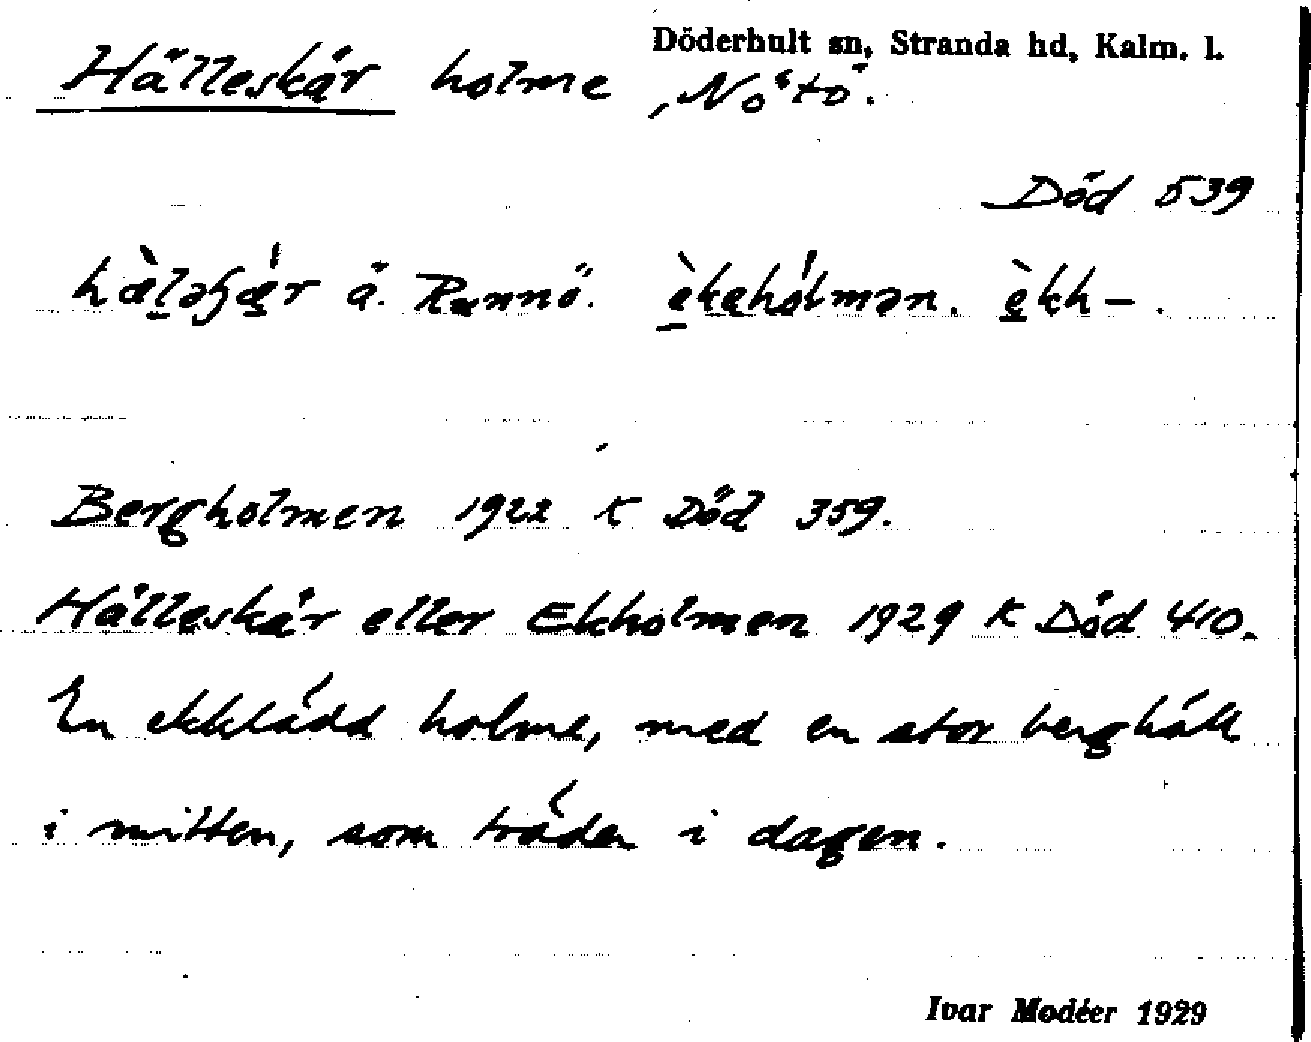 Döderhult sn, Stranda hd, Kalm. l.
Hälleskär holme, Nötö.
Död 539
hæ̀ləʃæ̀r ä. Runnö. èkehólmən. èkh–.
Bergholmen 1922 K Död 359.
Hälleskär eller Ekholmen 1929 K Död 410.
En ekklädd holme, med en stor berghäll
i mitten, som träder i dagen.
Ivar Modéer 1929